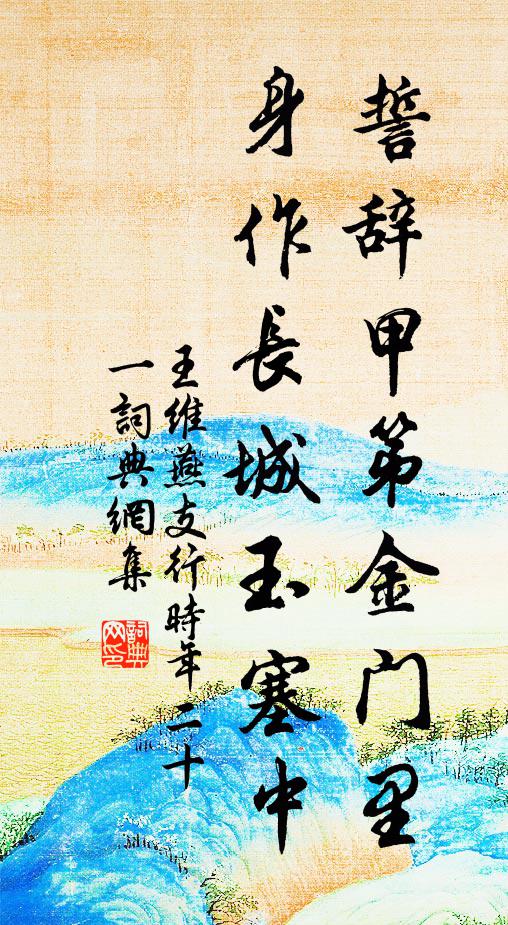 誓辞甲第金门里
身作長城玉塞中
王維燕支行時年二十
一詞典網集
詞典网印